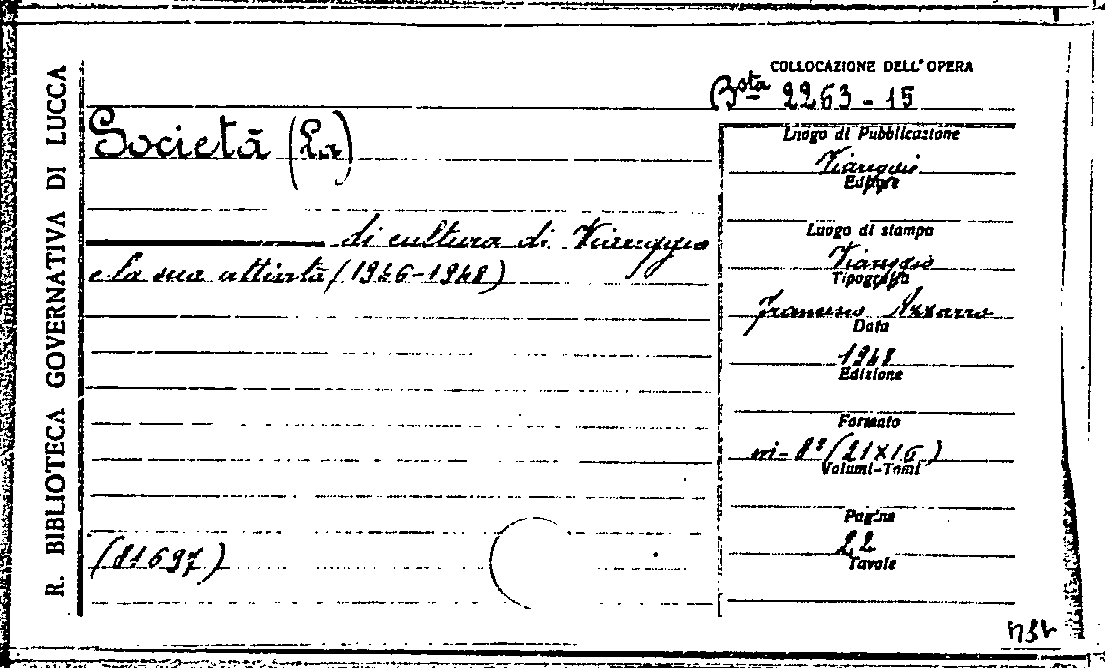 R. BIBLIOTECA GOVERNATIVA DI LUCCA
COLLOCAZIONE DELL'OPERA
Bsta 2263-15
Società (La)
di cultura di Viareggio
e la sua attività (1946-1948)
(81697)
Luogo di Pubblicazione
Viareggio
Editore
Luogo di stampa
Viareggio
Tipografia
Francesco Azzarro
Data
1948
Edizione
Formato
in-8° (21x16)
Volumi-Tomi
Pagine
22
Tavole